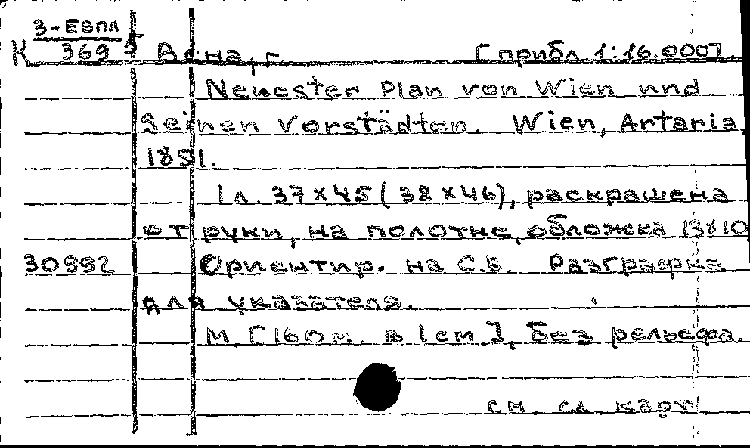 К 3-ЕВПЛ
369
Вена, г. [прибл 1:16.000].
Neuester Plan von Wien und
Seinen Vorstädten. Wien, Artaria,
1851.
1 л. 37×45 (38×46), раскрашена
от руки, на полотне, обложка 18×10
30992 Ориентир. на С.В. Разграфка
для указателя.
М. [160 м. в 1 см.], Без рельефа.
см. сл. карт